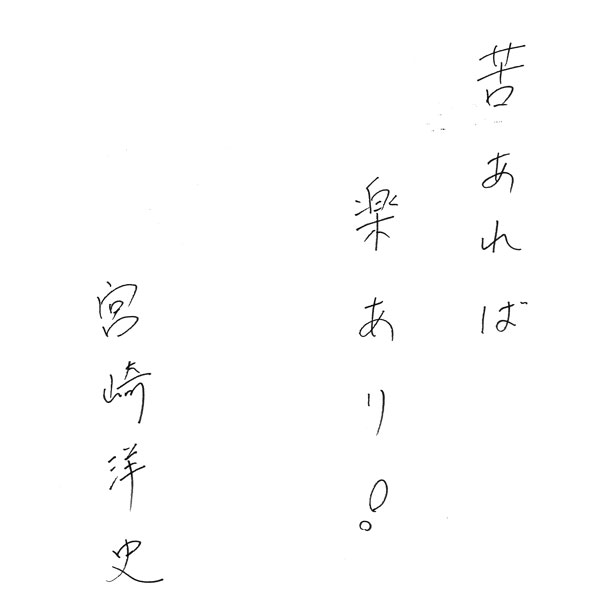 苦あれば
楽あり!
宮崎洋史